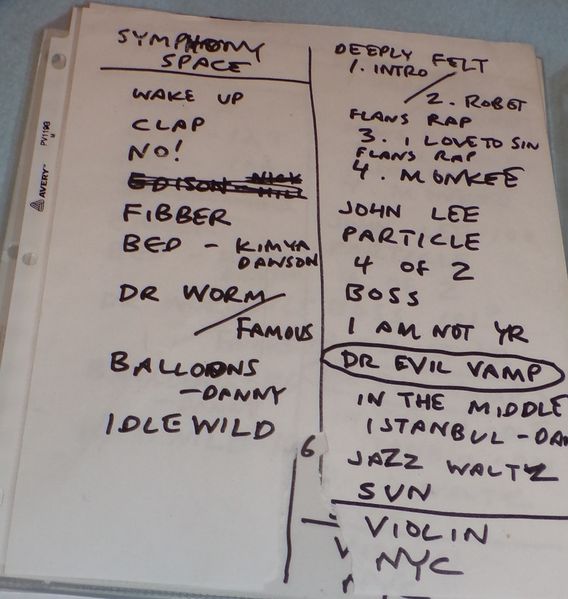 SYMPHONY
SPACE
WAKE UP
CLAP
NO!
EDISON - NICK
HILL
FIBBER
BED - KIMYA
DAWSON
DR WORM /
FAMOUS
BALLOONS
- DANNY
IDLEWILD
DEEPLY FELT
1. INTRO /
2. ROBOT
FLANS RAP
3. I LOVE TO SIN
FLANS RAP
4. MONKEE
JOHN LEE
PARTICLE
4 OF 2
BOSS
I AM NOT YR
DR EVIL VAMP
IN THE MIDDLE
ISTANBUL - DA
JAZZ WALTZ
SUN
VIOLIN
NYC
6
AVERY
PV119G